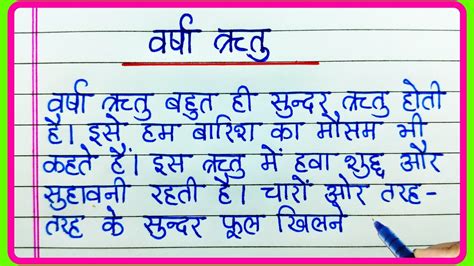 वर्षा ऋतु
वर्षा ऋतु बहुत ही सुन्दर ऋतु होती
है। इसे हम बारिश का मौसम भी
कहते हैं। इस ऋतु में हवा शुद्ध और
सुहावनी रहती है। चारों ओर तरह-
तरह के सुन्दर फूल खिलने